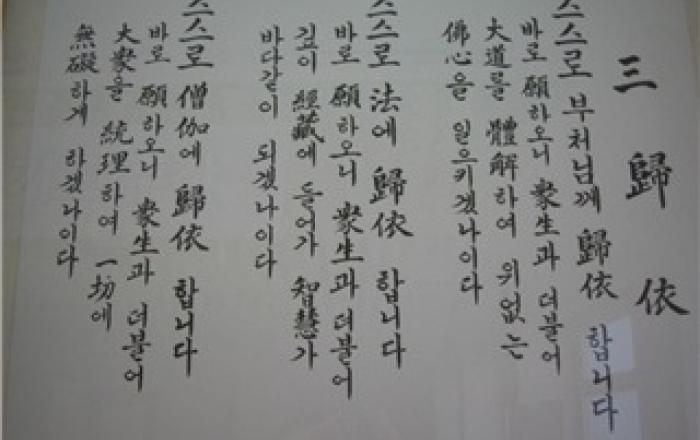 三歸依
스스로 부처님께 歸依 합니다
바로 願하오니 衆生과 더불어
大道를 體解하여 위없는
佛心을 일으키겠나이다
스스로 法에 歸依 합니다
바로 願하오니 衆生과 더불어
깊이 經藏에 들어가 智慧가
바다같이 되겠나이다
스스로 僧伽에 歸依 합니다
바로 願하오니 衆生과 더불어
大衆을 統理하여 一坊에
無礙하게 하겠나이다